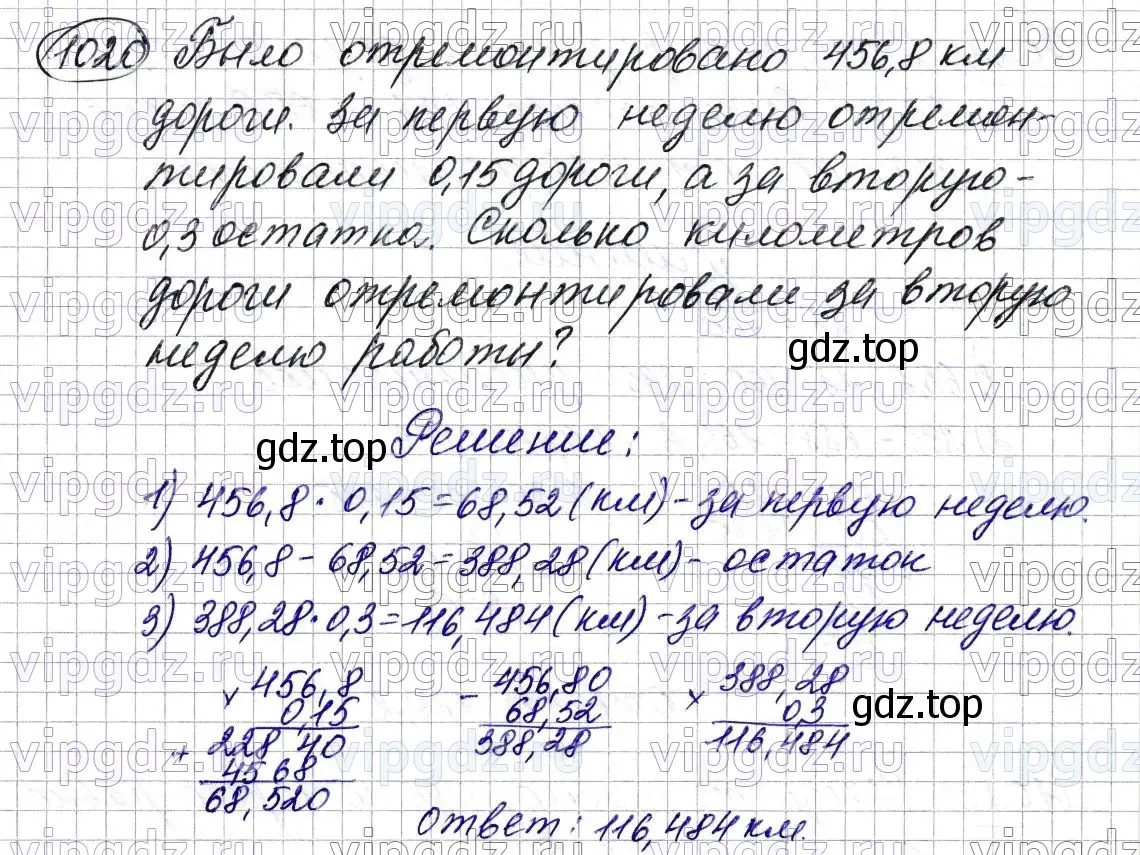 1020 Было отремонтировано 456,8 км
дороги. За первую неделю отремон-
тировали 0,15 дороги, а за вторую -
0,3 остатка. Сколько километров
дороги отремонтировали за вторую
неделю работы?
gdz.top
Решение:
gdz.top
1) 456,8 · 0,15 = 68,52 (км) - за первую неделю.
2) 456,8 - 68,52 = 388,28 (км) - остаток
3) 388,28 · 0,3 = 116,484 (км) - за вторую неделю.
× 456,8 - 456,80 × 388,28
0,15 68,52 0,3 gdz.top
+ 228 40 388,28 116,484
456 8
68,520
Ответ: 116,484 км.
vipgdz.ru